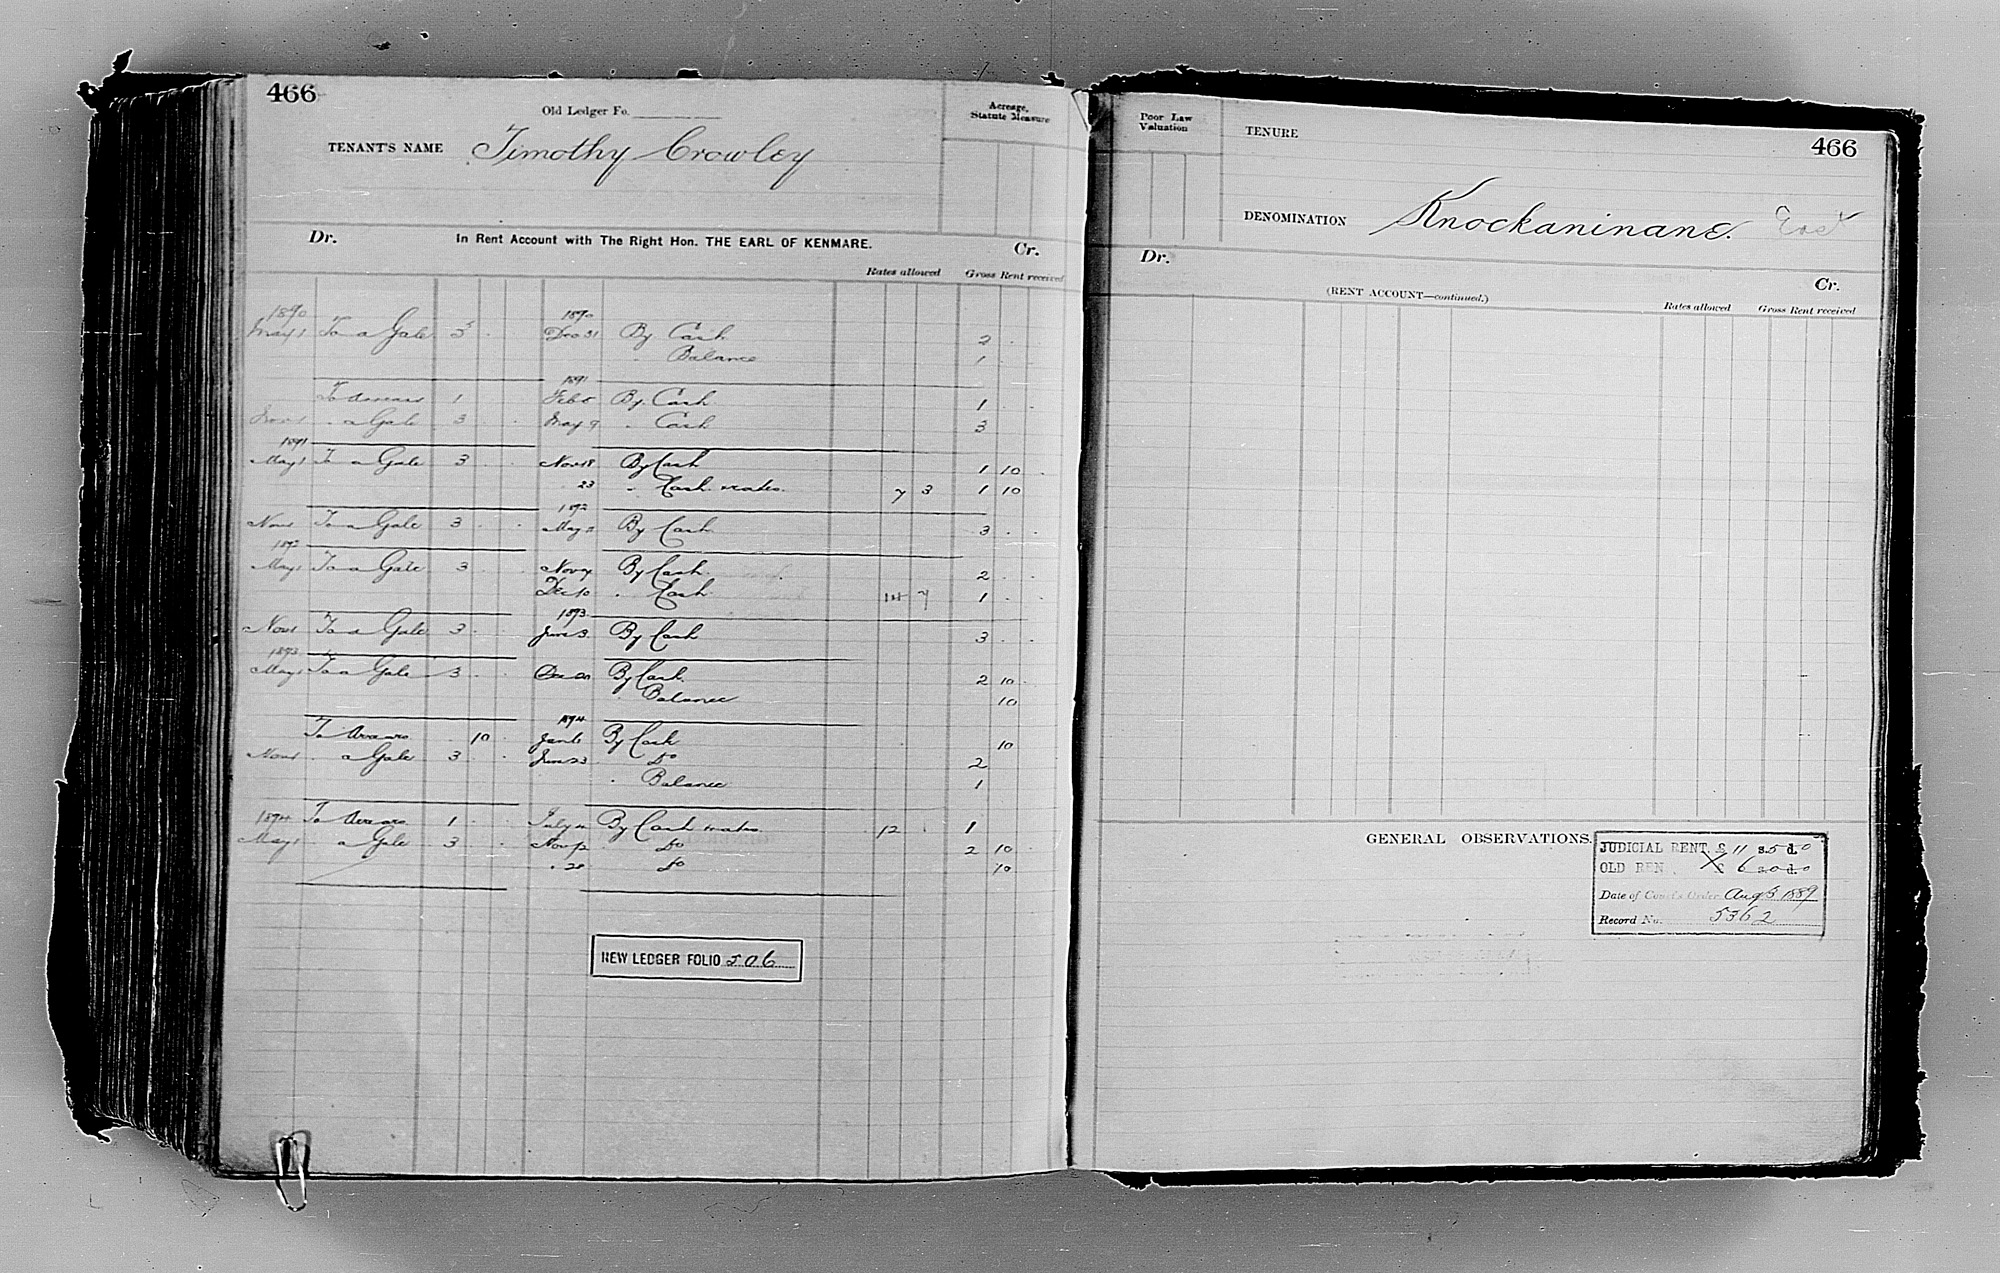 466
Old Ledger Fo.
Acreage, Statute Measure
TENANT'S NAME Timothy Crowley
Dr. In Rent Account with The Right Hon. THE EARL OF KENMARE. Cr.
Rates allowed Gross Rent received
1890 1890
May 1 To a Gale 3 Dec 31 By Cash 2
Balance 1
1891
To Arrears 1 Feb By Cash 1
Nov 1 a Gale 3 May 9 Cash 3
1891
May 1 To a Gale 3 Nov 18 By Cash 1 10
23 " Cash & rates 7 3 1 10
1892
Nov 1 To a Gale 3 May By Cash 3
1892
May 1 To a Gale 3 Nov By Cash 2
Dec 10 " Cash 14 7 1
1893
Nov 1 To a Gale 3 June 3 By Cash 3
1893
May 1 To a Gale 3 Dec By Cash 2 10
Balance 10
1894
To Arrears 10 Jan By Cash 10
Nov 1 a Gale 3 June 23 Do 2
" Balance 1
1894 To Arrears 1 July By Cash & rates 12 1
May 1 a Gale 3 Nov 12 Do 2 10
" 28 Do 10
NEW LEDGER FOLIO 506
Poor Law Valuation
TENURE
466
DENOMINATION Knockaninane. East
Dr. Cr.
(RENT ACCOUNT—continued.)
Rates allowed Gross Rent received
GENERAL OBSERVATIONS.
JUDICIAL RENT, £ 11 s. 5 d. 0
OLD REN £ 6 s. 0 d. 0
Date of Court's Order Aug 3 1889
Record No. 5362